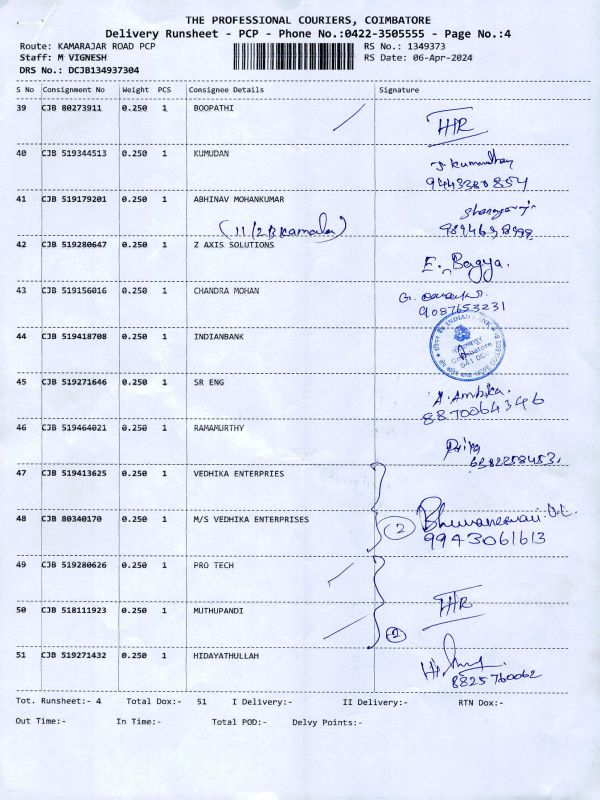 THE PROFESSIONAL COURIERS, COIMBATORE
Delivery Runsheet - PCP - Phone No.:0422-3505555 - Page No.:4
Route: KAMARAJAR ROAD PCP RS No.: 1349373
Staff: M VIGNESH RS Date: 06-Apr-2024
DRS No.: DCJB134937304
S No Consignment No Weight PCS Consignee Details Signature
39 CJB 80273911 0.250 1 BOOPATHI
40 CJB 519344513 0.250 1 KUMUDAN
9443380854
41 CJB 519179201 0.250 1 ABHINAV MOHANKUMAR
(11/2B Kamala)
42 CJB 519280647 0.250 1 Z AXIS SOLUTIONS
E. Bagya.
43 CJB 519156016 0.250 1 CHANDRA MOHAN
9087653231
44 CJB 519418708 0.250 1 INDIANBANK
INDIAN BANK
45 CJB 519271646 0.250 1 SR ENG
A. Ambika.
8870064346
46 CJB 519464021 0.250 1 RAMAMURTHY
Priya
47 CJB 519413625 0.250 1 VEDHIKA ENTERPRIES
48 CJB 80340170 0.250 1 M/S VEDHIKA ENTERPRISES
2
Bhuvaneswari
9943061613
49 CJB 519280626 0.250 1 PRO TECH
50 CJB 518111923 0.250 1 MUTHUPANDI
51 CJB 519271432 0.250 1 HIDAYATHULLAH
8825760062
Tot. Runsheet:- 4 Total Dox:- 51 I Delivery:- II Delivery:- RTN Dox:-
Out Time:- In Time:- Total POD:- Delvy Points:-